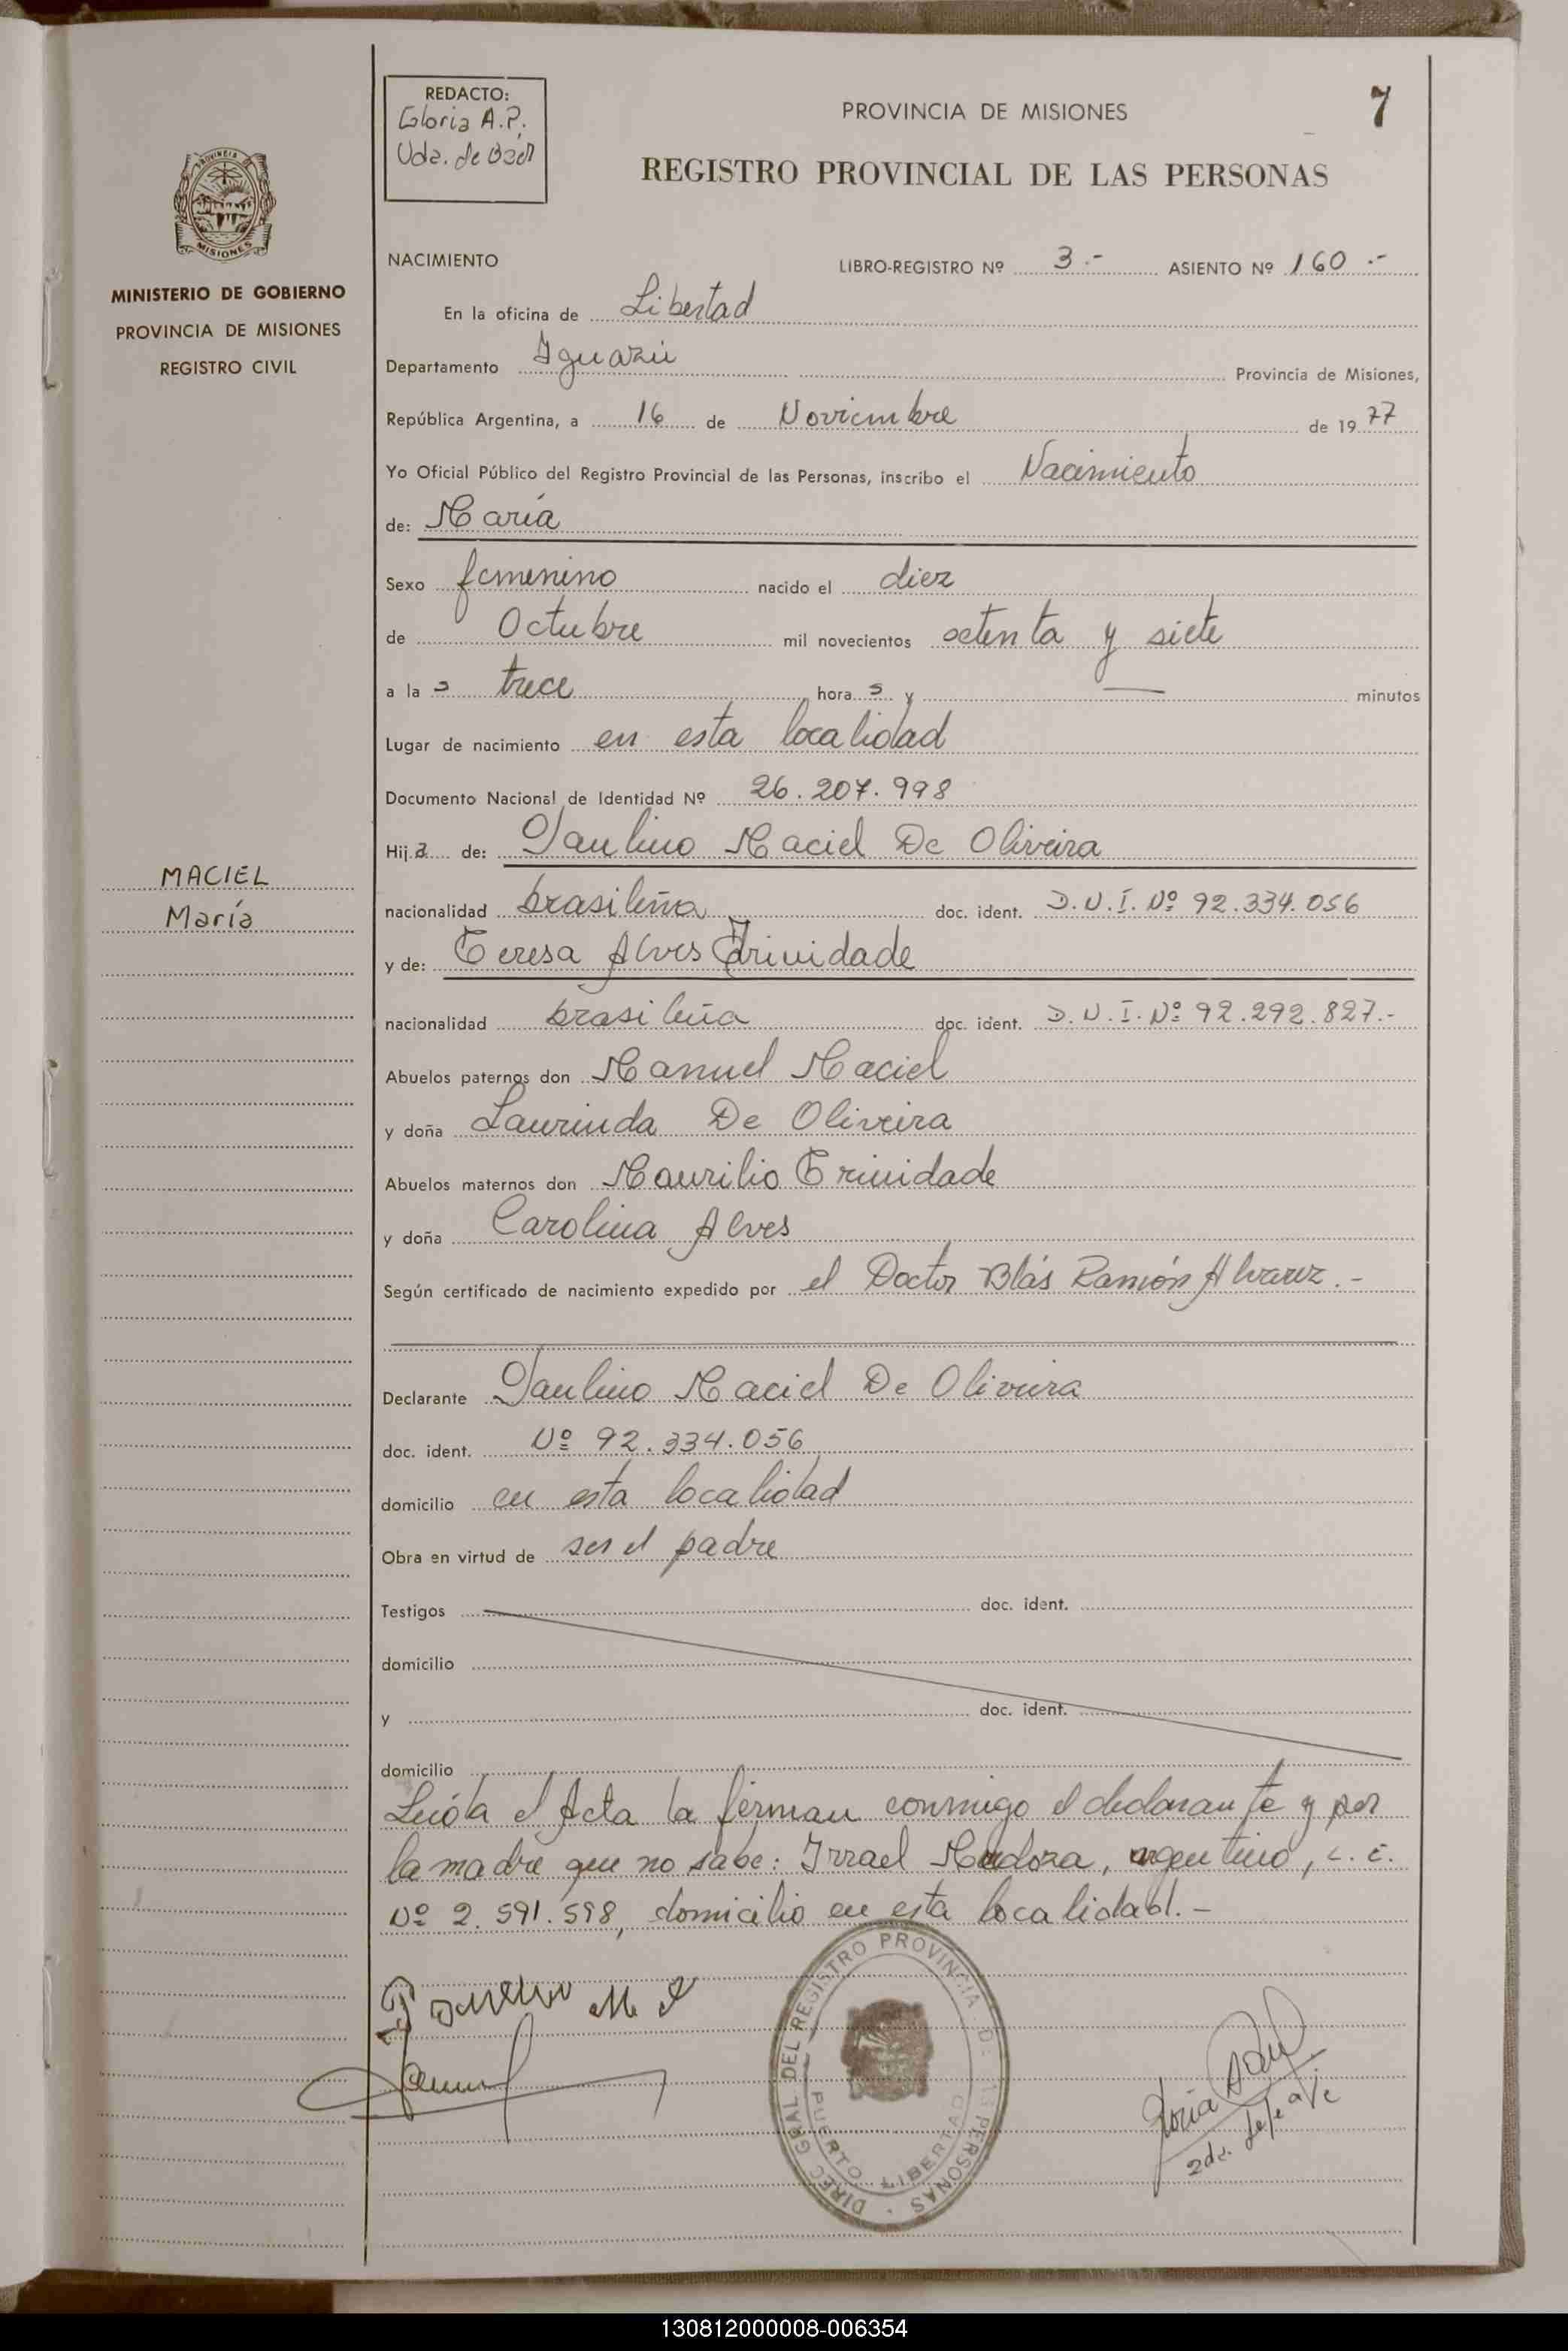 REDACTO:
Gloria A.P.
Vda. de Báez
PROVINCIA DE MISIONES
7
REGISTRO PROVINCIAL DE LAS PERSONAS
PROVINCIA DE
MISIONES
MINISTERIO DE GOBIERNO
PROVINCIA DE MISIONES
REGISTRO CIVIL
NACIMIENTO LIBRO-REGISTRO Nº 3.- ASIENTO Nº 160.-
En la oficina de Libertad
Departamento Iguazú Provincia de Misiones,
República Argentina, a 16 de Noviembre de 1977
Yo Oficial Público del Registro Provincial de las Personas, inscribo el Nacimiento
de: María
Sexo femenino nacido el diez
de Octubre mil novecientos setenta y siete
a las trece horas y — minutos
Lugar de nacimiento en esta localidad
Documento Nacional de Identidad Nº 26.207.998
Hija de: Paulino Maciel De Oliveira
MACIEL
María
nacionalidad brasileña doc. ident. D.N.I. Nº 92.334.056
y de: Teresa Alves Trinidade
nacionalidad brasileña doc. ident. D.N.I. Nº 92.292.827.-
Abuelos paternos don Manuel Maciel
y doña Laurinda De Oliveira
Abuelos maternos don Maurilio Trinidade
y doña Carolina Alves
Según certificado de nacimiento expedido por el Doctor Blás Ramón Alvarez.-
Declarante Paulino Maciel De Oliveira
doc. ident. Nº 92.334.056
domicilio en esta localidad
Obra en virtud de ser el padre
Testigos doc. ident.
domicilio
y doc. ident.
domicilio
Leída el Acta la firman conmigo el declarante y por
la madre que no sabe: Irrael Mendoza, argentino, c.i.
Nº 2.591.598, domicilio en esta localidad.-
DIREC GRAL DEL REGISTRO PROVINCIA DE LAS PERSONAS
PUERTO LIBERTAD
130812000008-006354